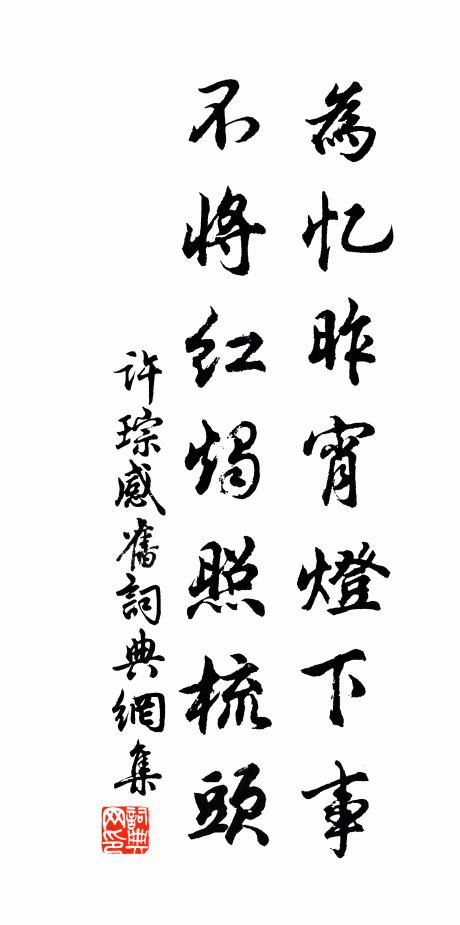 為忆昨宵燈下事
不將红燭照梳頭
许琮感舊詞典網集
詞典网印